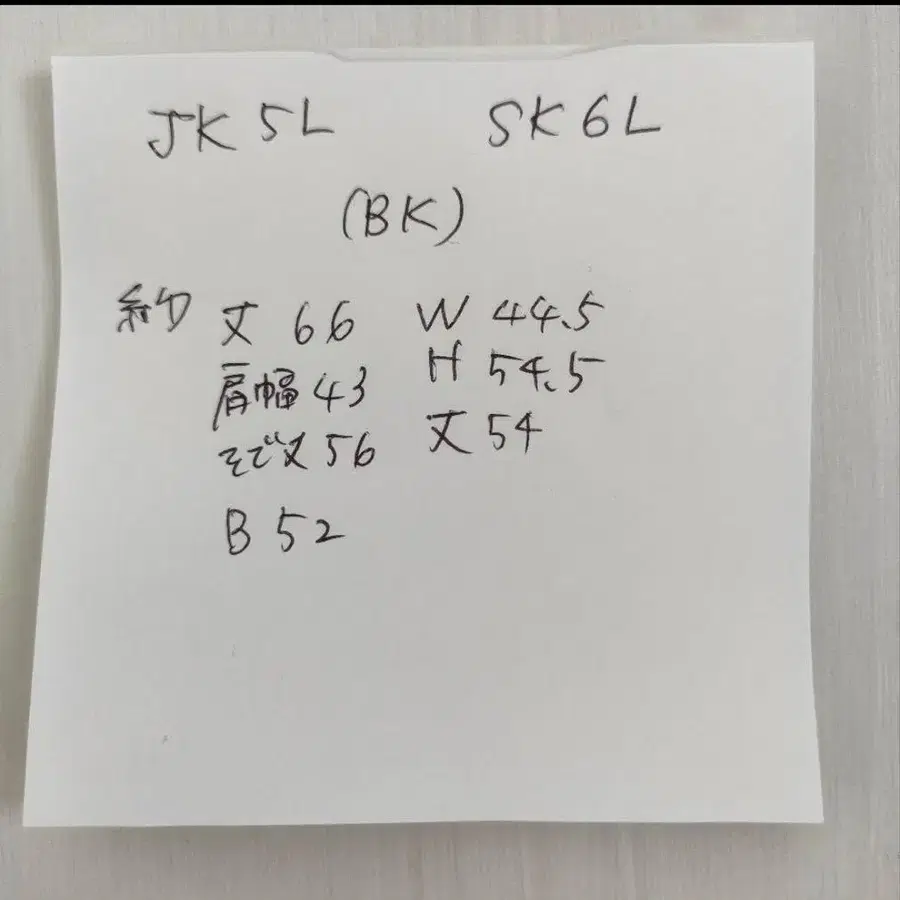 JK 5L SK 6L
(BK)
約 丈 66 W 44.5
肩幅 43 H 54.5
そで丈 56 丈 54
B 52